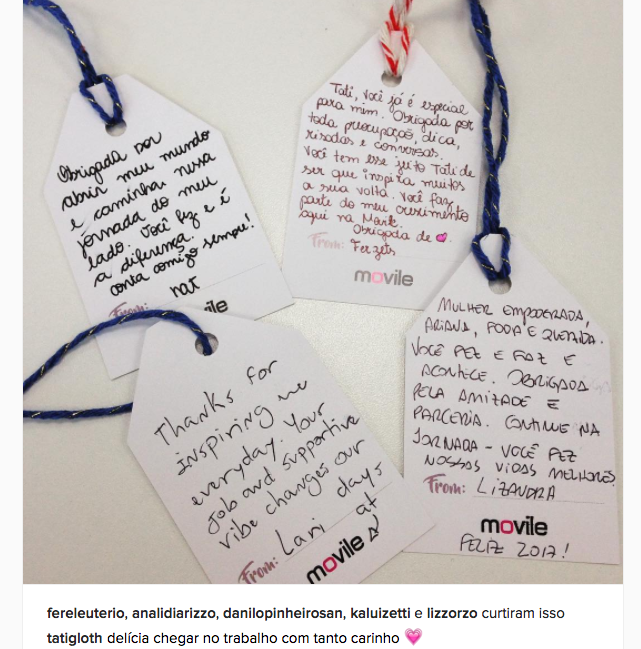 Obrigada por
abrir meu mundo
e caminhar nessa
jornada do meu
lado. Você fez e é
a diferença.
conta comigo sempre!
From: nat
movile
Tati, você já é especial
para mim. Obrigada por
toda preocupação, dica,
risadas e conversas.
Você tem esse jeito Tati de
ser que inspira muitos
a sua volta. Você faz
parte do meu crescimento
aqui na Movile.
Obrigada de 💗.
From: Ferzets
movile
Thanks for
inspiring me
everyday. Your
job and supportive
vibe changes our
days
From: Lari at
movile
MULHER EMPODERADA,
ARIANA, FODA E QUERIDA.
VOCÊ FEZ E FAZ E
ACONTECE. OBRIGADA
PELA AMIZADE E
PARCERIA. CONTINUE NA
JORNADA - VOCÊ FEZ
NOSSAS VIDAS MELHORES.
From: LIZANDRA
movile
FELIZ 2017!
fereleuterio, analidiarizzo, danilopinheirosan, kaluizetti e lizzorzo curtiram isso
tatigloth delícia chegar no trabalho com tanto carinho 💗